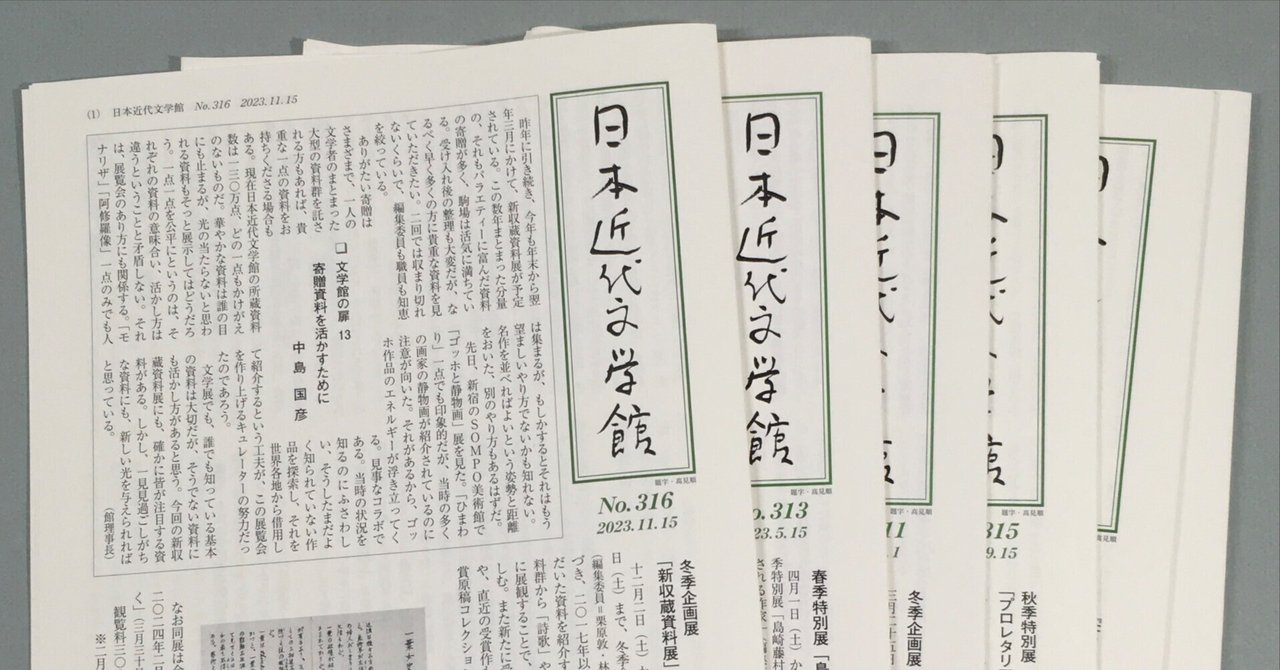 (1) 日本近代文学館 No. 316 2023. 11. 15
日本近代文学館
題字・高見順
No. 316
2023. 11. 15
昨年に引き続き、今年も年末から翌
年三月にかけて、新収蔵資料展が予定
されている。この数年まとまった分量
の、それもバラエティーに富んだ資料
の寄贈が多く、駒場は活気に満ちてい
る。受け入れ後の整理も大変だが、な
るべく早く多くの方に貴重な資料を見
ていただきたい。二回では収まり切れ
ないくらいで、編集委員も職員も知恵
を絞っている。
ありがたい寄贈は
さまざまで、一人の
文学者のまとまった
大型の資料群を託さ
れる方もあれば、貴
重な一点の資料をお
持ちくださる場合も
ある。現在日本近代文学館の所蔵資料
数は一三〇万点、どの一点もかけがえ
のないものだ。華やかな資料は誰の目
にも止まるが、光の当たらないと思わ
れる資料もそっと展示してはどうだろ
う。一点一点を公平にというのは、そ
れぞれの資料の意味合い、活かし方は
違うということと矛盾しない。それ
は、展覧会のあり方にも関係する。「モ
ナリザ」「阿修羅像」一点のみでも人
□ 文学館の扉 13
寄贈資料を活かすために
中島国彦
は集まるが、もしかするとそれはもう
望ましいやり方でないかも知れない。
名作を並べればよいという姿勢と距離
をおいた、別のやり方もあるはずだ。
先日、新宿のSOMPO美術館で
「ゴッホと静物画」展を見た。「ひまわ
り」一点でも印象的だが、当時の多く
の画家の静物画が紹介されているのに
注意が向いた。それがあるから、ゴッ
ホ作品のエネルギーが浮き立ってく
る、見事なコラボで
ある。当時の状況を
知るのにふさわし
い、そうしたまだよ
く知られていない作
品を探索し、それを
世界各地から借用し
て紹介するという工夫が、この展覧会
を作り上げるキュレーターの努力だっ
たのであろう。
文学展でも、誰でも知っている基本
の資料は大切だが、そうでない資料に
も活かし方があると思う。今回の新収
蔵資料展にも、確かに皆が注目する資
料がある。しかし、一見見過ごしがち
な資料にも、新しい光を与えられれば
と思っている。
(館理事長)
冬季企画展
「新収蔵資料展」
十二月二日(土)
日(土)まで、冬季
(編集委員=栗原敦・林
づき、二〇一七年以
だいた資料を紹介す
料群から「詩歌」や
に展観することで、
しむ。また新たに
や、直近の受賞作
賞原稿コレクショ
なお同展は会
二〇二四年二
く」(三月三十
観覧料三〇
※二月
日本近代文学館
題字・高見順
No. 313
2023. 5. 15
春季特別展「島
四月一日(土)か
季特別展「島崎藤村
される作家
題字・高見順
11
1
冬季企画展
題字・高見順
315
9. 15
秋季特別展
「プロレタリ
高見順